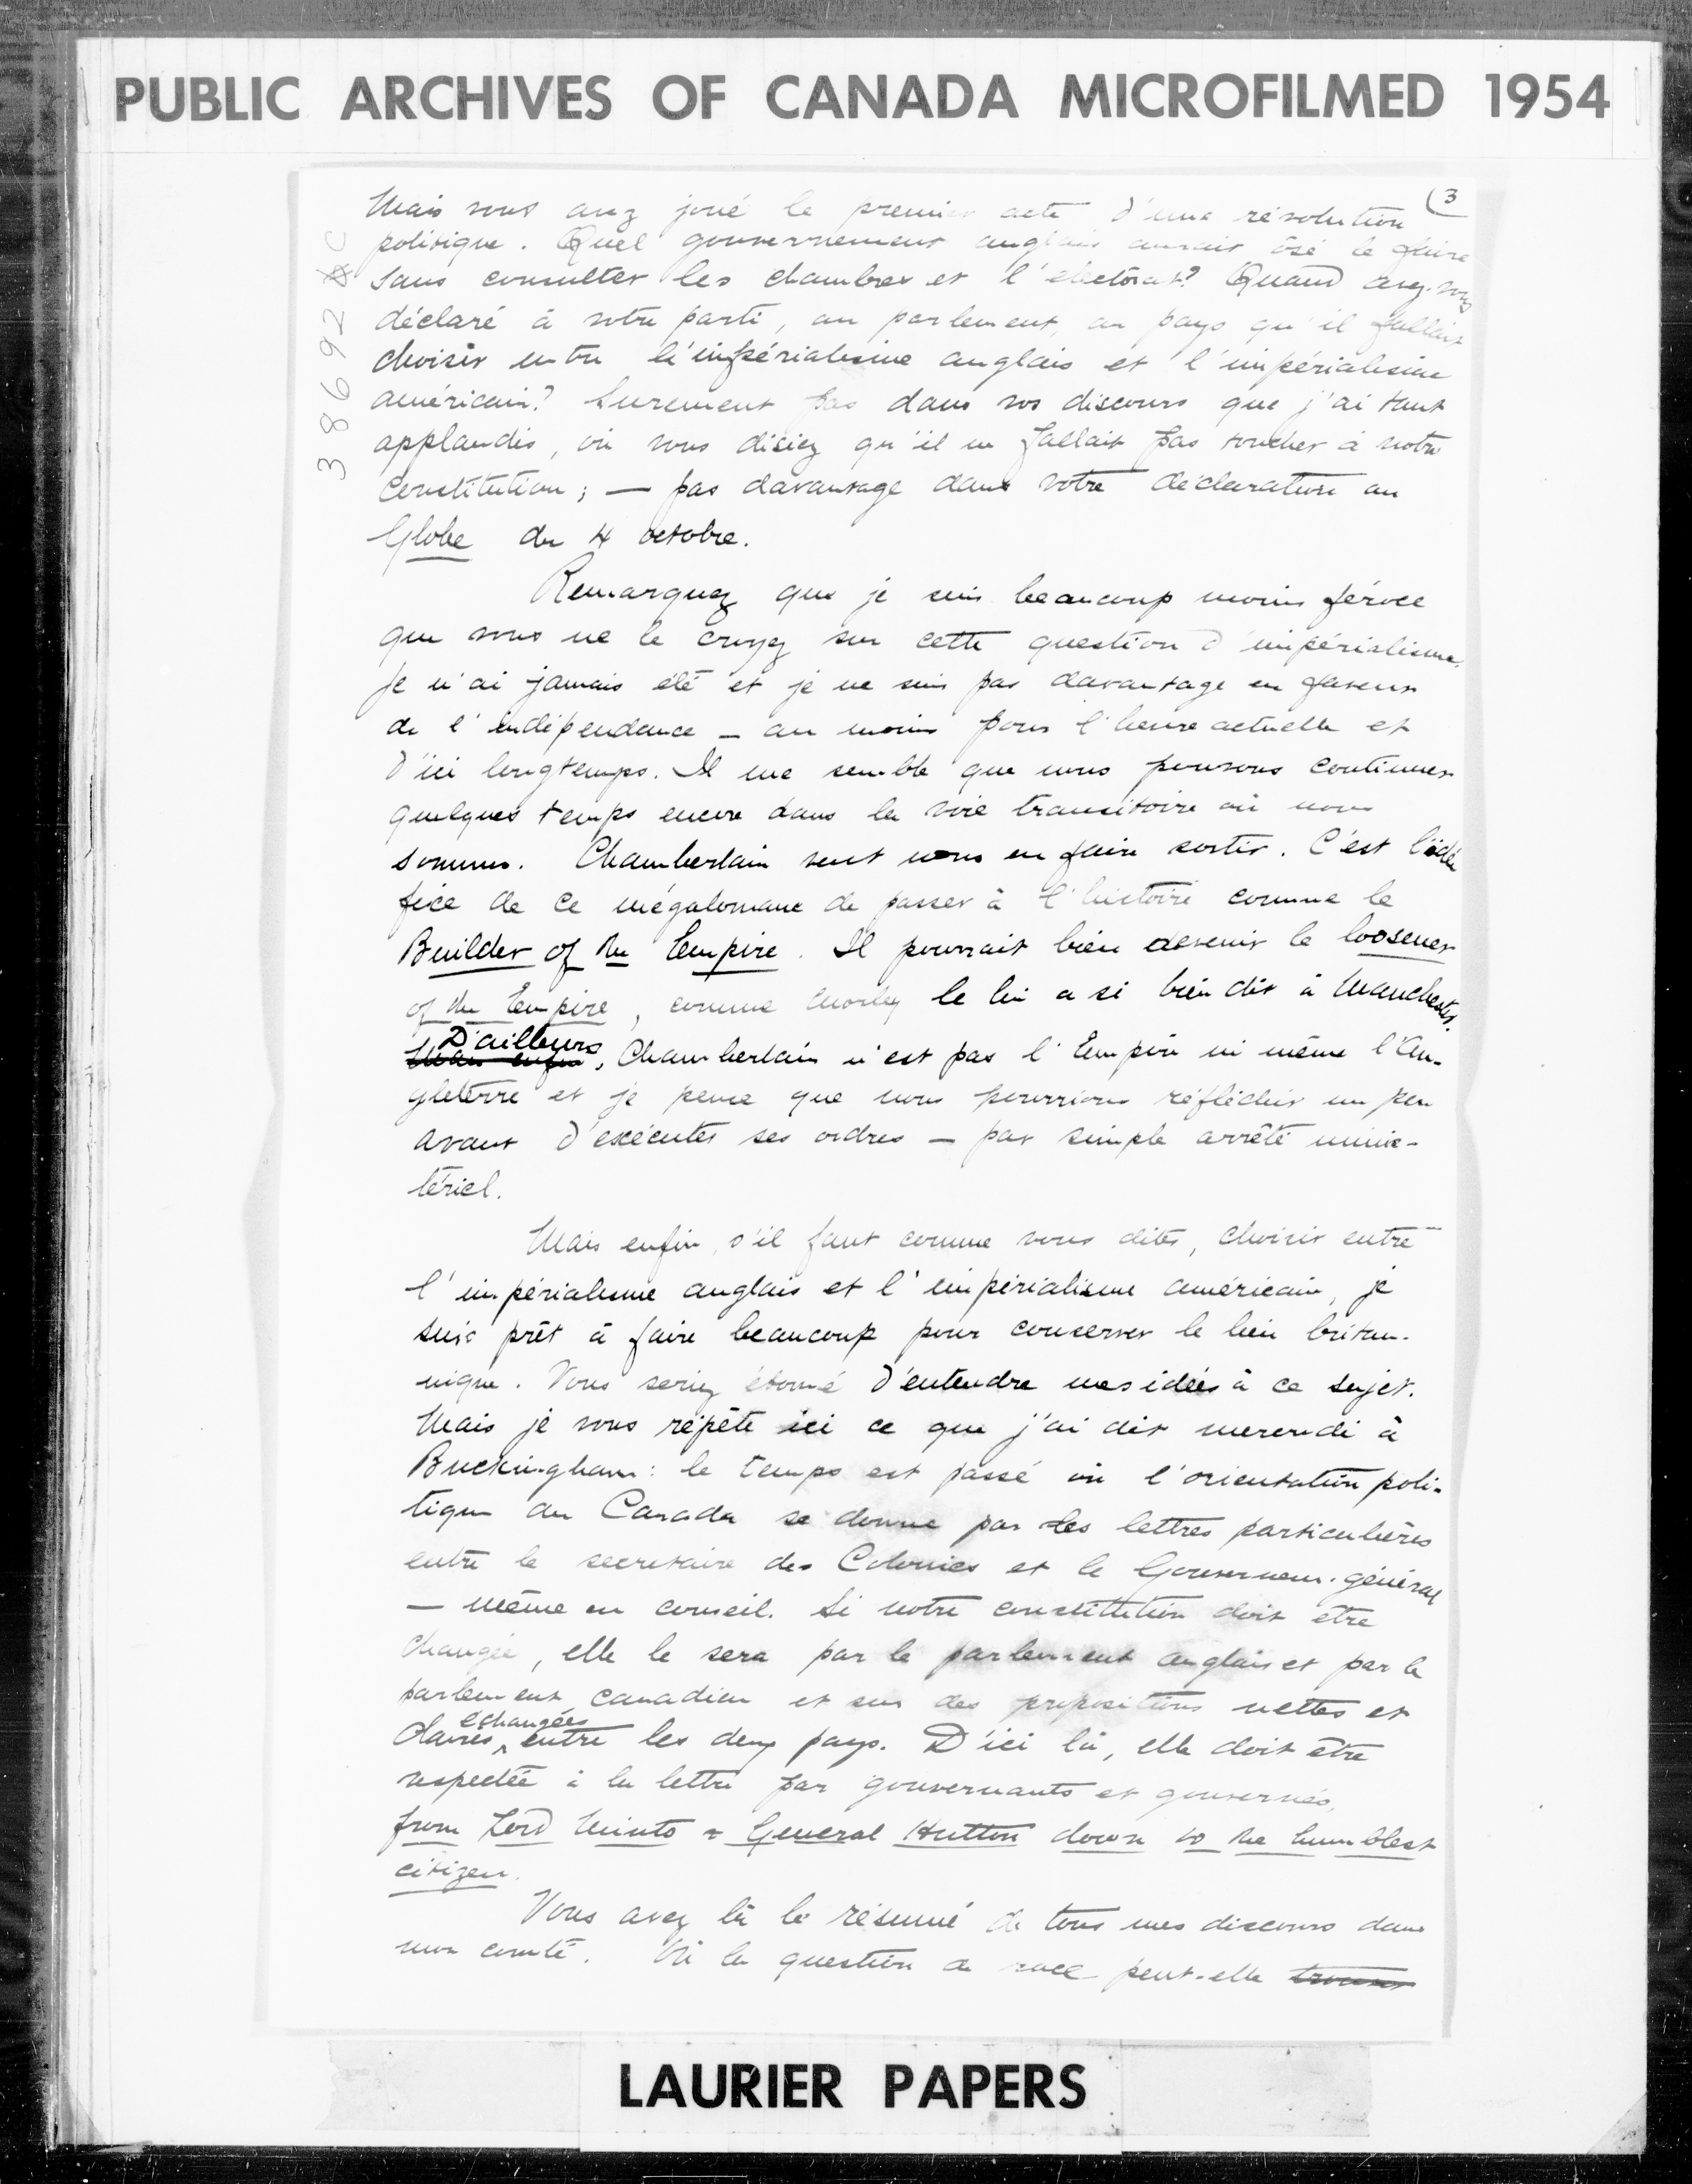 PUBLIC ARCHIVES OF CANADA MICROFILMED 1954
(3
38692 C
Mais vous avez joué le premier acte d'une révolution
politique. Quel gouvernement anglais aurait ôsé le faire
sans consulter les chambres et l'électorat? Quand avez-vous
déclaré à votre parti, au parlement, au pays qu'il fallait
choisir entre l'impérialisme anglais et l'impérialisme
américain? Surement pas dans vos discours que j'ai tant
applaudis, où vous disiez qu'il ne fallait pas toucher à notre
Constitution; — pas davantage dans votre déclaration au
Globe du 4 octobre.
Remarquez que je suis beaucoup moins féroce
que vous ne le croyez sur cette question d'impérialisme.
Je n'ai jamais été et je ne suis pas davantage en faveur
de l'indépendance — au moins pour l'heure actuelle et
d'ici longtemps. Il me semble que nous pouvons continuer
quelques temps encore dans la voie transitoire où nous
sommes. Chamberlain veut nous en faire sortir. C'est l'idée
fixe de ce mégalomane de passer à l'histoire comme le
Builder of the Empire. Il pourrait bien devenir le loosener
of the Empire, comme Morley le lui a si bien dit à Manchester.
Mais enfin D'ailleurs, Chamberlain n'est pas l'Empire ni même l'An-
gleterre et je pense que nous pourrions réfléchir un peu
avant d'exécuter ses ordres — par simple arrêté minis-
tériel.
Mais enfin, s'il faut comme vous dites, choisir entre
l'impérialisme anglais et l'impérialisme américain, je
suis prêt à faire beaucoup pour conserver le lien britan-
nique. Vous seriez étonné d'entendre mes idées à ce sujet.
Mais je vous répète ici ce que j'ai dit mercredi à
Buckingham: le temps est passé où l'orientation poli-
tique du Canada se donne par les lettres particulières
entre le secretaire des Colonies et le Gouverneur-général
— même en conseil. Si notre constitution doit être
changée, elle le sera par le parlement anglais et par le
parlement canadien et sur des propositions nettes et
claires échangées entre les deux pays. D'ici là, elle doit être
respectée à la lettre par gouvernants et gouvernés,
from Lord Minto & General Hutton down to the humblest
citizen.
Vous avez là le résumé de tous mes discours dans
mon comté. Où la question de race peut-elle trouver
LAURIER PAPERS